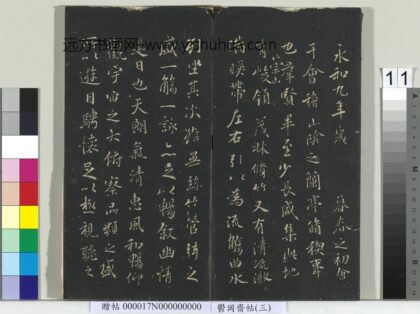 远方书画网 www.yishuhua.com
永和九年歲 暮春之初會
于會稽山陰之蘭亭脩稧事
也群賢畢至少長咸集此地
有峻領茂林脩竹又有清流激
湍暎帶左右引以為流觴曲水
列坐其次雖無絲竹管弦之
盛一觴一詠亦足以暢敘幽情
是日也天朗氣清惠風和暢仰
觀宇宙之大俯察品類之盛
所以遊目騁懷足以極視聽之
11
贈帖 000017N000000000 鬱岡齋帖(三)